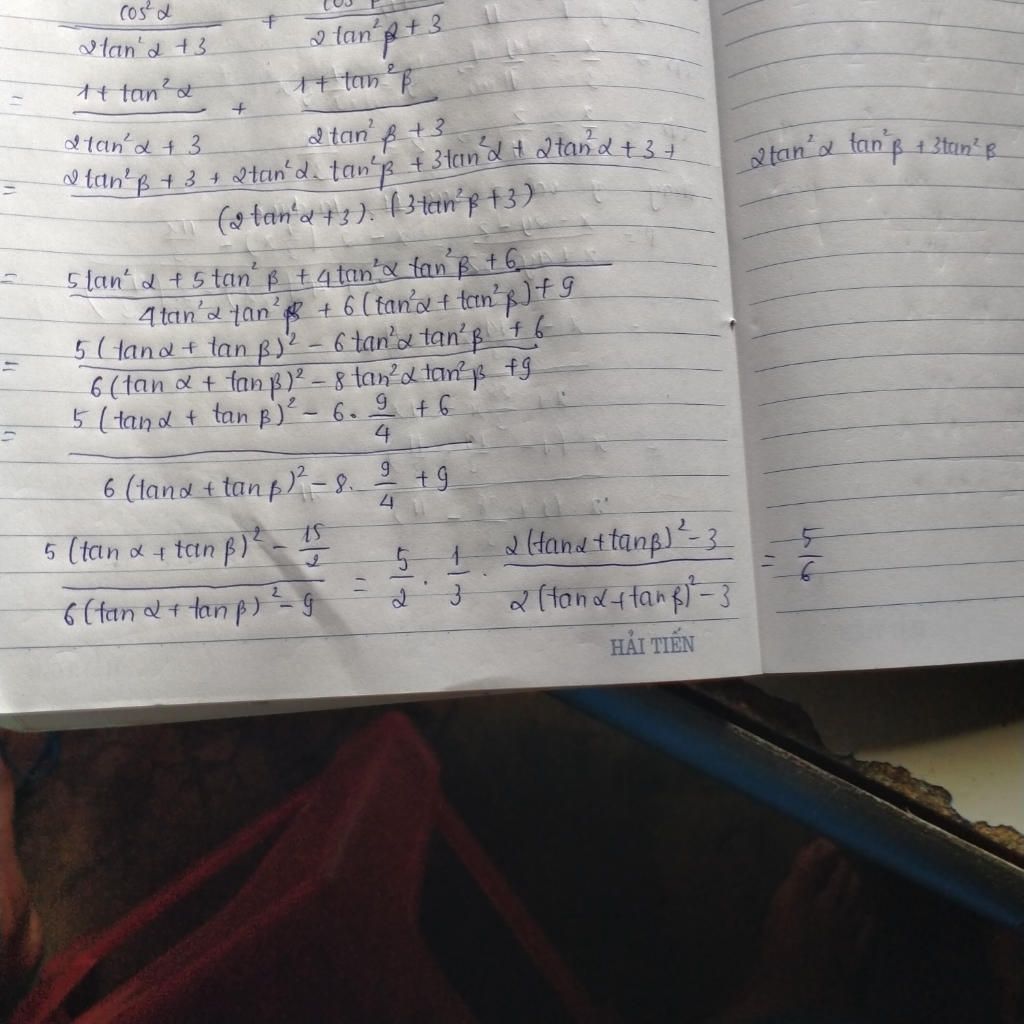 cos²α / 2tan²α + 3 + cos²β / 2tan²β + 3
= 1 + tan²α / 2tan²α + 3 + 1 + tan²β / 2tan²β + 3
= 2tan²β + 3 + 2tan²α . tan²β + 3tan²α + 2tan²α + 3 + 2tan²α tan²β + 3tan²β / (2tan²α + 3) . (3tan²β + 3)
= 5tan²α + 5tan²β + 4tan²α tan²β + 6 / 4tan²α tan²β + 6(tan²α + tan²β) + 9
= 5(tanα + tanβ)² - 6tan²α tan²β + 6 / 6(tanα + tanβ)² - 8tan²α tan²β + 9
= 5(tanα + tanβ)² - 6 . 9/4 + 6 / 6(tanα + tanβ)² - 8 . 9/4 + 9
5(tanα + tanβ)² - 15/2 / 6(tanα + tanβ)² - 9 = 5/2 . 1/3 . 2(tanα + tanβ)² - 3 / 2(tanα + tanβ)² - 3 = 5/6
HẢI TIẾN